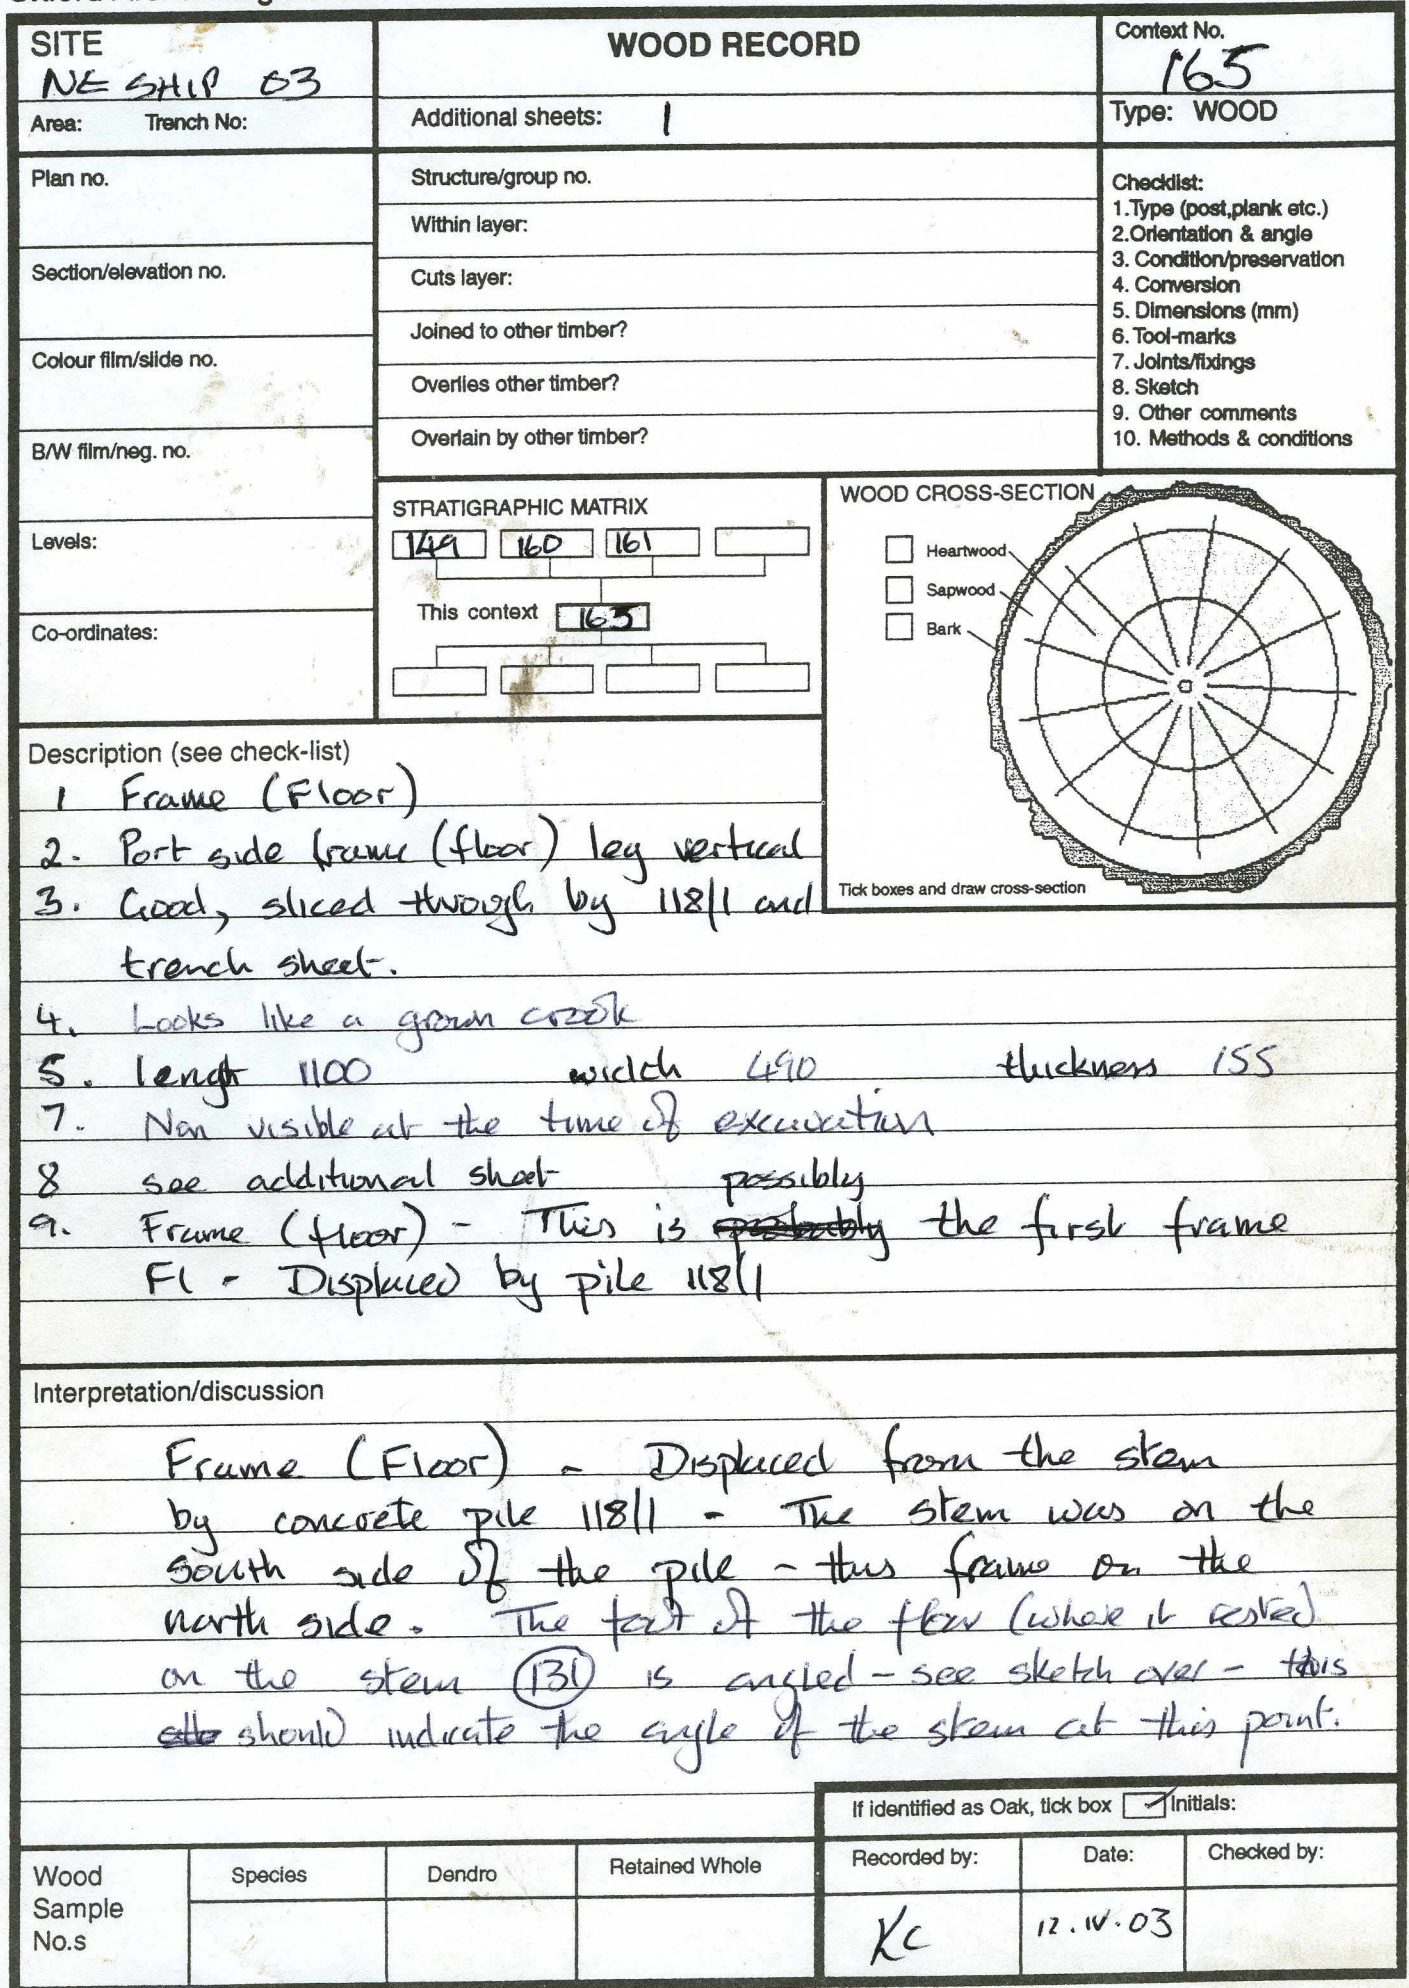 SITE
NE SHIP 03
WOOD RECORD
Context No.
165
Area: Trench No:
Additional sheets: 1
Type: WOOD
Plan no.
Structure/group no.
Within layer:
Section/elevation no.
Cuts layer:
Joined to other timber?
Colour film/slide no.
Overlies other timber?
B/W film/neg. no.
Overlain by other timber?
Checklist:
1.Type (post,plank etc.)
2.Orientation & angle
3. Condition/preservation
4. Conversion
5. Dimensions (mm)
6. Tool-marks
7. Joints/fixings
8. Sketch
9. Other comments
10. Methods & conditions
Levels:
Co-ordinates:
STRATIGRAPHIC MATRIX
149 160 161
This context 165
WOOD CROSS-SECTION
Heartwood
Sapwood
Bark
Tick boxes and draw cross-section
Description (see check-list)
1 Frame (Floor)
2. Port side frame (floor) leg vertical
3. Good, sliced through by 118/1 and
trench sheet.
4. Looks like a grown crook
5. length 1100 width 490 thickness 155
7. Non visible at the time of excavation
8 see additional sheet
9. Frame (floor) - This is possibly the first frame
F1 - Displaced by pile 118/1
Interpretation/discussion
Frame (Floor) - Displaced from the stem
by concrete pile 118/1 - The stem was on the
south side of the pile - this frame on the
north side. The foot of the floor (where it rested
on the stem 131 is angled - see sketch over - this
should indicate the angle of the stem at this point.
If identified as Oak, tick box Initials:
Wood
Sample
No.s
Species
Dendro
Retained Whole
Recorded by:
KC
Date:
12.IV.03
Checked by: